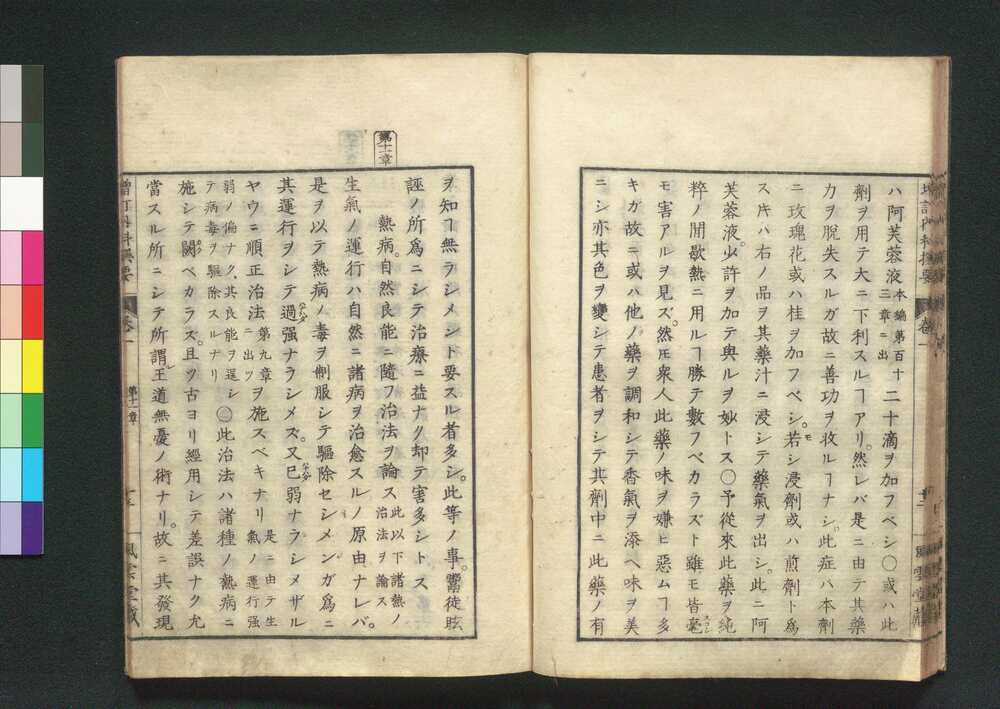 ハ阿芙蓉液本編第百十三章ニ出二十滴ヲ加フベシ〇或ハ此
劑ヲ用テ大ニ下利スルヿアリ。然レバ是ニ由テ其藥
力ヲ脫失スルガ故ニ善功ヲ收ルヿナシ。此症ハ本劑
ニ玫瑰花或ハ桂ヲ加フベシ。若シモ浸劑或ハ煎劑ト爲
スキハ右ノ品ヲ其藥汁ニ浸シテ藥氣ヲ出シ。此ニ阿
芙蓉液。少許ヲ加テ與ルヲ妙トス〇予從來此藥ヲ純
粹ノ間歇熱ニ用ルヿ勝テ數フベカラズト雖モ皆毫
モ害アルヲ見ズ。然𪜈衆人此藥ノ味ヲ嫌ヒ惡ムヿ多
キガ故ニ或ハ他ノ藥ヲ調和シテ香氣ヲ添ヘ味ヲ美
ニシ亦其色ヲ變シテ患者ヲシテ其劑中ニ此藥ノ有
ヲ知ヿ無ラシメント要スル者多シ。此等ノ事。醫徒眩
誣ノ所爲ニシテ治療ニ益ナク却テ害多シトス
第十一章
熱病。自然良能ニ隨フ治法ヲ論ス此以下諸熱ノ治法ヲ論ス
生氣ノ運行ハ自然ニ諸病ヲ治愈スルノ原由ナレバ。
是ヲ以テ熱病ノ毒ヲ制服シテ驅除セシメンガ爲ニ
其運行ヲシテ過強ナラシメズ。又已弱ナラシメザル
ヤウニ順正治法第九章ニ出ツヲ施スベキナリ是ニ由テ生氣ノ運行強
弱ノ偏ナク、其良能ヲ逞シテ病毒ヲ驅除スルナリ〇此治法ハ諸種ノ熱病ニ
施シテ闕ベカラズ。且ツ古ヨリ經用シテ差誤ナク尤
當スル所ニシテ所謂王道無憂ノ術ナリ。故ニ其發現
卷一
第十一章
風雲堂藏